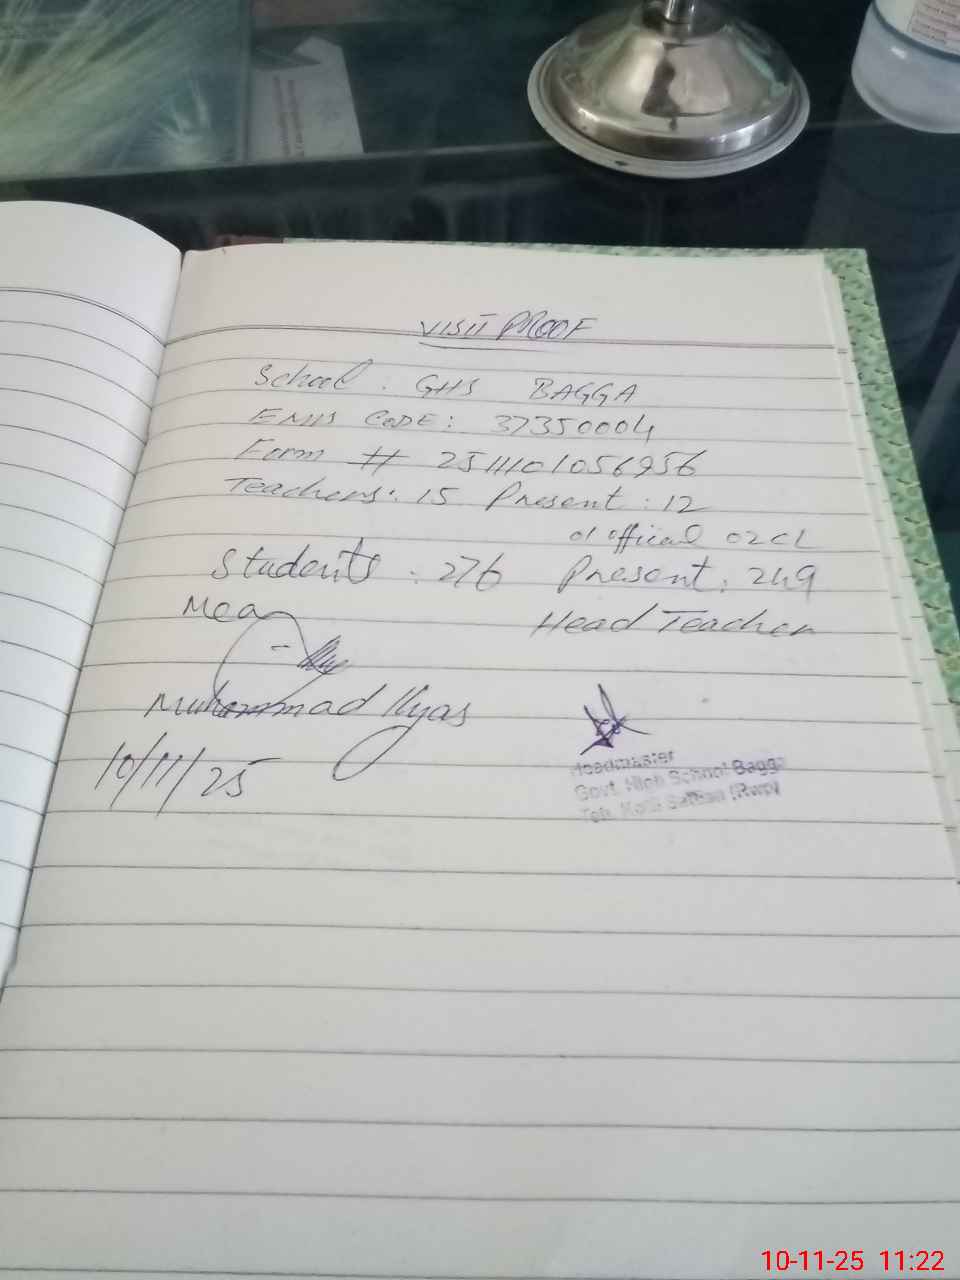 VISIT PROOF
School : GHS BAGGA
EMIS CODE : 37350004
Form # 2511101056956
Teachers : 15 Present : 12
01 official 02 CL
Students : 276 Present : 249
Mea Head Teacher
Muhammad Ilyas
10/11/25
Headmaster
Govt. High School Bagga
Teh. Kotli Sattian (Rwp)
10-11-25 11:22